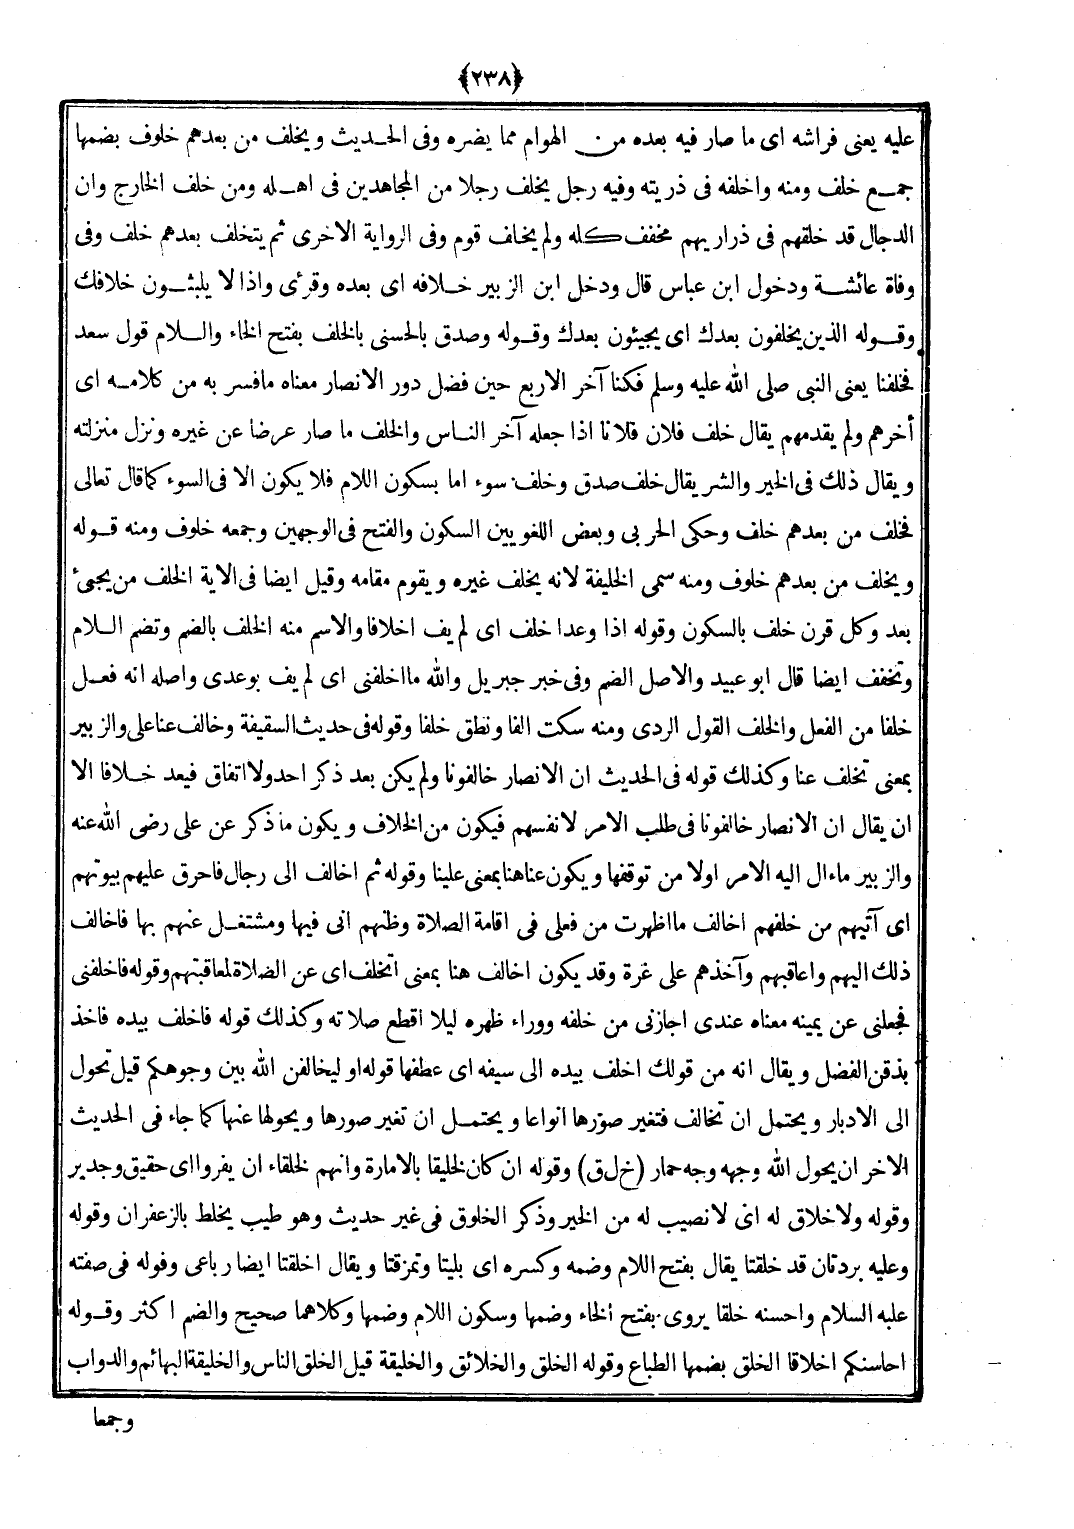 ﴿٢٣٨﴾
عليه يعنى فراشه اى ما صار فيه بعده من الهوام مما يضره وفى الحديث ويخلف من بعدهم خلوف بضمها
جمع خلف ومنه واخلفه فى ذريته وفيه رجل يخلف رجلا من المجاهدين فى اهله ومن خلف الخارج وان
الدجال قد خلفهم فى ذراريهم مخفف كله ولم يخلف قوم وفى الرواية الاخرى ثم يتخلف بعدهم خلف وفى
وفاة عائشة ودخول ابن عباس قال ودخل ابن الزبير خلافه اى بعده وقرئ واذا لا يلبثون خلافك
وقوله الذين يخلفون بعدك اى يجيئون بعدك وقوله وصدق بالحسنى بالخلف بفتح الخاء واللام قول سعد
فخلفنا يعنى النبى صلى الله عليه وسلم فكنا آخر الاربع حين فضل دور الانصار معناه مافسر به من كلامه اى
أخرهم ولم يقدمهم يقال خلف فلان فلانا اذا جعله آخر الناس والخلف ما صار عرضا عن غيره ونزل منزلته
ويقال ذلك فى الخير والشر يقال خلف صدق وخلف سوء اما بسكون اللام فلا يكون الا فى السوء كما قال تعالى
فخلف من بعدهم خلف وحكى الحربى وبعض اللغويين السكون والفتح فى الوجهين وجمعه خلوف ومنه قوله
ويخلف من بعدهم خلوف ومنه سمى الخليفة لانه يخلف غيره ويقوم مقامه وقيل ايضا فى الاية الخلف من يجئ
بعد وكل قرن خلف بالسكون وقوله اذا وعدا خلف اى لم يف اخلافا والاسم منه الخلف بالضم وتضم اللام
وتخفف ايضا قال ابو عبيد والاصل الضم وفى خبر جبريل والله مااخلفنى اى لم يف بوعدى واصله انه فعل
خلفا من الفعل والخلف القول الردى ومنه سكت الفا ونطق خلفا وقوله فى حديث السقيفة وخالف عنا على والزبير
بمعنى تخلف عنا وكذلك قوله فى الحديث ان الانصار خالفونا ولم يكن بعد ذكر احد ولا اتفاق فيعد خلافا الا
ان يقال ان الانصار خالفونا فى طلب الامر لانفسهم فيكون من الخلاف ويكون ماذكر عن على رضى الله عنه
والزبير ماءال اليه الامر اولا من توقفها ويكون عناهنا بمعنى علينا وقوله ثم اخالف الى رجال فاحرق عليهم بيوتهم
اى آتيهم من خلفهم اخالف مااظهرت من فعلى فى اقامة الصلاة وظنهم انى فيها ومشتغل عنهم بها فاخالف
ذلك اليهم واعاقبهم وآخذهم على غرة وقد يكون اخالف هنا بمعنى اتخلف اى عن الصلاة لمعاقبتهم وقوله فاخلفنى
فجعلنى عن يمينه معناه عندى اجازنى من خلفه ووراء ظهره ليلا اقطع صلاته وكذلك قوله فاخلف بيده فاخذ
بذقن الفضل ويقال انه من قولك اخلف بيده الى سيفه اى عطفها قوله او ليخالفن الله بين وجوهكم قيل تحول
الى الادبار ويحتمل ان تخالف فتغير صورها انواعا ويحتمل ان تغير صورها ويحولها عنها كما جاء فى الحديث
الاخر ان يحول الله وجهه وجه حمار (خ ل ق) وقوله ان كان لخليقا بالامارة وانهم لخلقاء ان يفروا اى حقيق وجدير
وقوله ولاخلاق له اى لانصيب له من الخير وذكر الخلوق فى غير حديث وهو طيب يخلط بالزعفران وقوله
وعليه بردتان قد خلقتا يقال بفتح اللام وضمه وكسره اى بليتا وتمزقتا ويقال اخلقتا ايضا رباعى وقوله فى صفته
عليه السلام واحسنه خلقا يروى بفتح الخاء وضمها وسكون اللام وضمها وكلاهما صحيح والضم اكثر وقوله
احاسنكم اخلاقا الخلق بضمها الطباع وقوله الخلق والخلائق والخليقة قيل الخلق الناس والخليقة البهائم والدواب
وجمعا